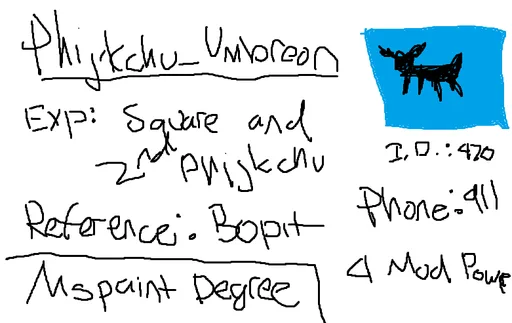 Phijkchu_Umbreon
Exp: Square and
2nd Phijkchu
Reference: Bopit
Mspaint Degree
I.D.: 470
Phone: 911
4 Mod Powe